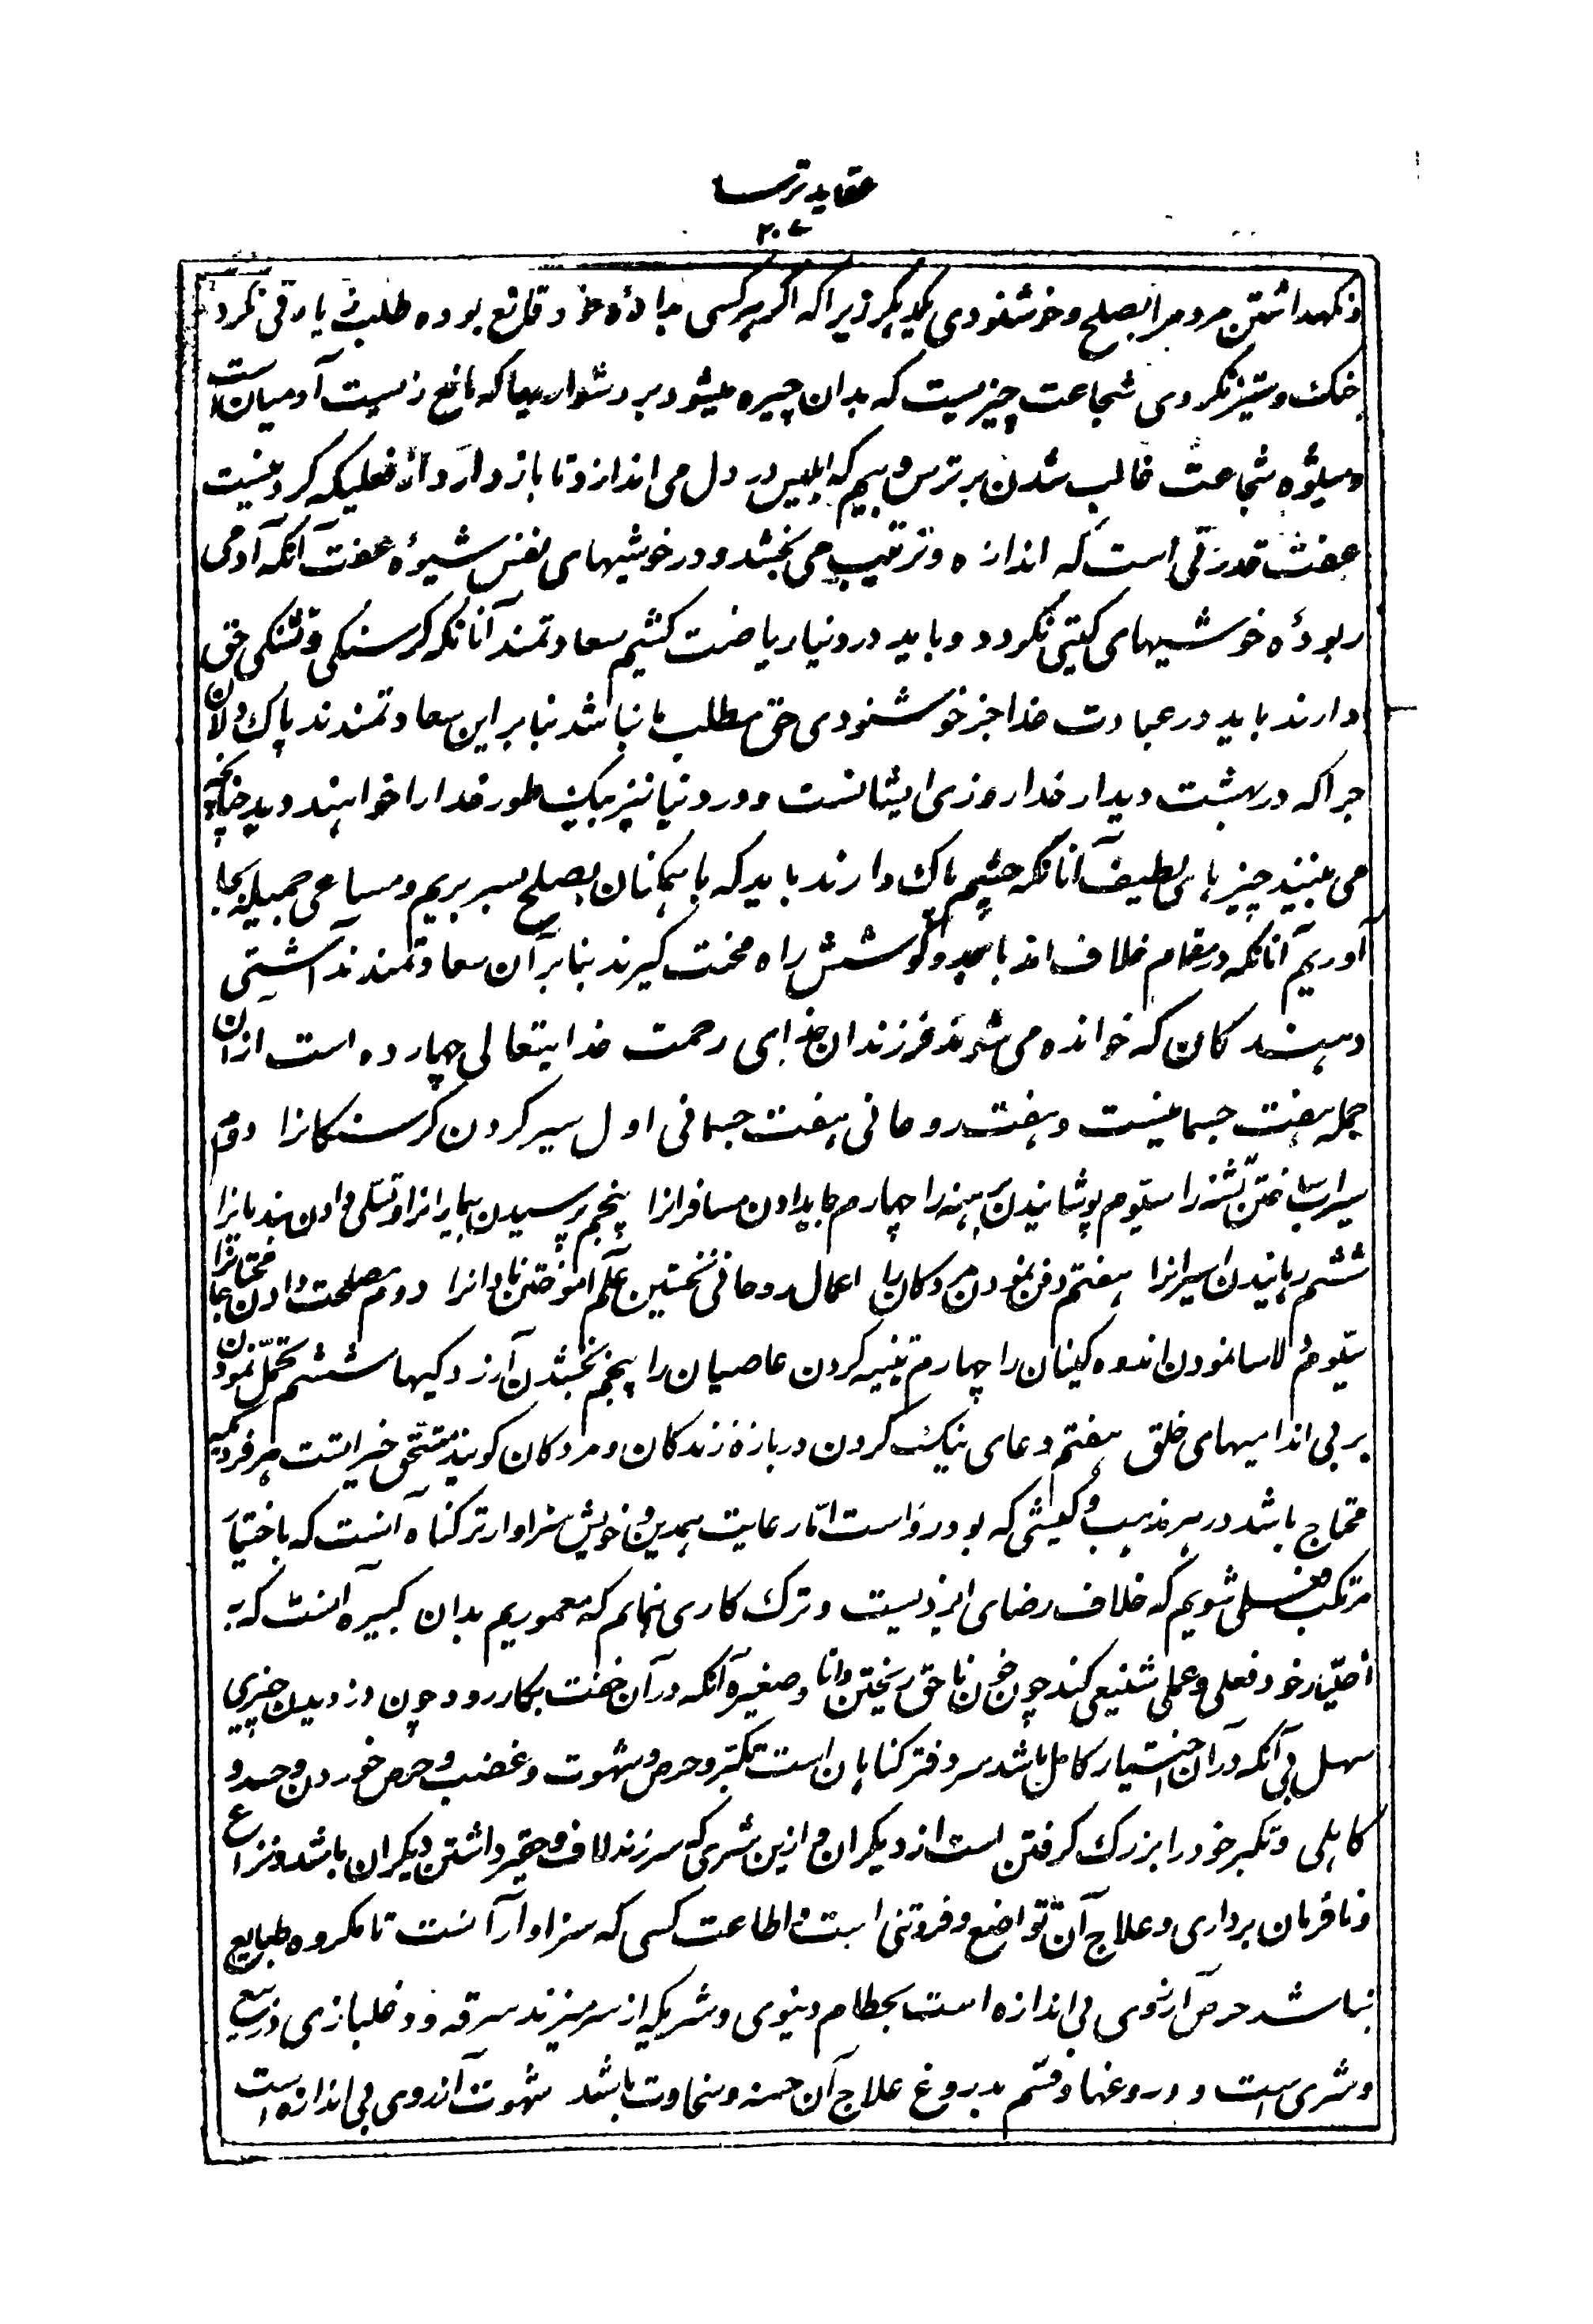 عقاید ترسا
۲۰۷
و نگهداشتن مردم را بصلح و خوشنودی یکدیگر زیرا که اگر هر کسی بدادهٔ خود قانع بوده طلب نارقی نکرد
جنک و ستیز نکردی شجاعت چیزیست که بدان چیره میشود بر دشواریها که مانع زیست آدمیان است
و میشوه شجاعت غالب شدن بر ترس و بیم که ابلیس در دل می اندازد تا باز دارد از فعلیکه کردنیست
عفت قدرتی است که اندازه و ترتیب می بخشد و در خوشیهای نفس شیوهٔ عفت آنکه آدمی
ربودهٔ خوشیهای کیتی نکردد و باید در دنیا ریاضت کشیم سعادتمند آنانکه کرسنکی و تشنکی حق
دارند باید در عبادت خدا جز خوشنودی حق مطلب ما نباشد بنابر این سعادتمندند پاک دلان
چرا که در بهشت دیدار خدا روزی ایشانست و در دنیا نیز بیک طور خدا را خواهند دید چنانچه
می بینند چیزهای لطیف آنانکه چشم پاک دارند باید که با همکنان بصلح سر بریم و مساعی جمیله بجا
آوریم آنانکه در مقام خلاف اند با جد و کوشش راه محنت کیرند بنابر آن سعادتمندند آشتی
دهند کان که خوانده می شوند فرزندان خدای رحمت خدایتعالی چهارده است از ان
جمله هفت جسمانیست و هفت روحانی هفت جسمانی اول سیر کردن کرسنکانرا دوم
سیراب ساختن تشنه را سیوم پوشانیدن برهنه را چهارم جایدادن مسافرانرا پنجم پرسیدن بیمارانرا و تسلی دادن بندیانرا
ششم رهانیدن اسیرانرا هفتم دفن نمودن مردکان را اعمال روحانی نخستین علم آموختن نادانرا دوم مصلحت دادن محتاجانرا
سیوم دلاسا نمودن اندوه کینان را چهارم تنبیه کردن عاصیان را پنجم بخشیدن آزردکیها ششم تحمل نمودن
بر بی اندامیهای خلق هفتم دعای نیک کردن دربارهٔ زندکان و مردکان کویند مستحق خیر است هر فردیکه
محتاج باشد در هر مذهب و کیشی که بود رواست امّا رعایت همدین خویش سزاوارتر کناه آنست که باختیار
مرتکب فعلی شویم که خلاف رضای ایزدیست و ترک کاری نمایم که معموریم بدان کبیره آنست که به
اختیار خود فعلی و عملی شنیعی کند چون خون ناحق ریختن و زنا و صغیره آنکه در آن خفت بکار رود چون دزدیدن چیزی
سهل بی آنکه در آن اختیار کامل باشد سر دفتر کناهان است تکبر و حرص و شهوت و غضب و حرص خوردن و حسد و
کاهلی و تکبر خود را بزرک کرفتن است از دیکران و ازین شری که سر زند لاف و حقیر داشتن دیکران باشد و نزاع
و نافرمان برداری و علاج آن تواضع و فروتنی است و اطاعت کسی که سزاوار آنست تا مکروه طبایع
نباشد حرص آرزوی بی اندازه است بحطام دنیوی و شریکه از سر میزند سرقه و دغلبازی
و شری است و دروغها و قسم بدروغ علاج آن حسنه و سخاوت باشد شهوت آرزوی بی اندازه است